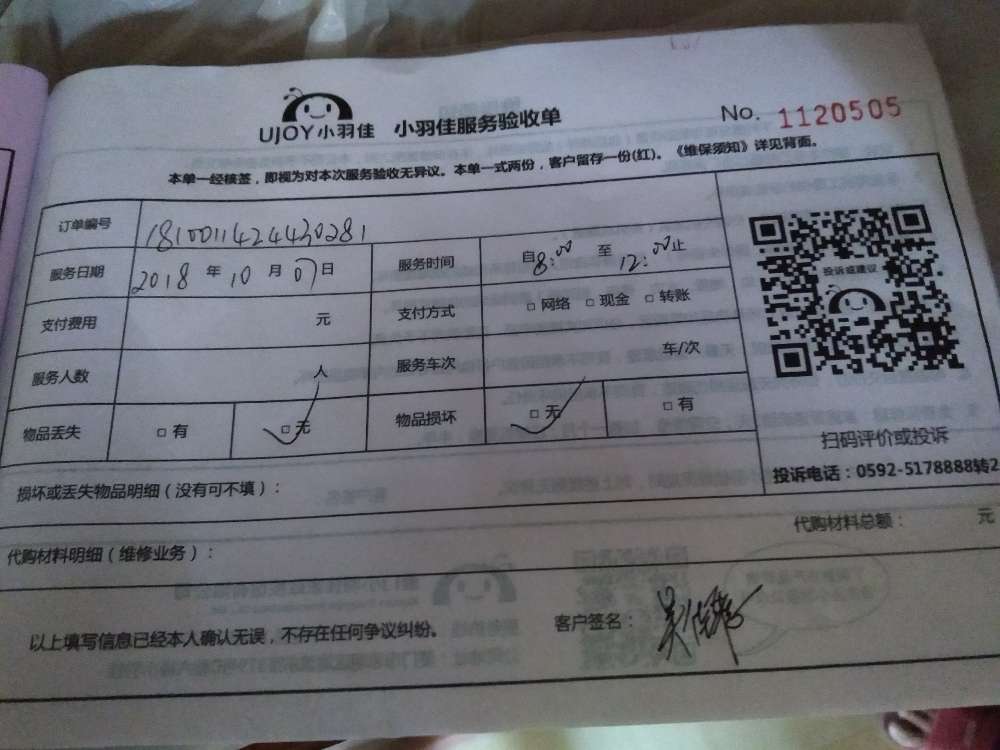 UJOY小羽佳 小羽佳服务验收单 No. 1120505
本单一经核签，即视为对本次服务验收无异议。本单一式两份，客户留存一份(红)。《维保须知》详见背面。
订单编号 1810011424430281
服务日期 2018 年 10 月 07 日 服务时间 自 8:00 至 12:00 止
支付费用 元 支付方式 □ 网络 □ 现金 □ 转账
服务人数 人 服务车次 车/次
物品丢失 □ 有 □ 无 物品损坏 □ 无 □ 有
投诉或建议
扫码评价或投诉
投诉电话：0592-5178888转2
损坏或丢失物品明细（没有可不填）：
代购材料明细（维修业务）： 代购材料总额： 元
以上填写信息已经本人确认无误，不存在任何争议纠纷。 客户签名：